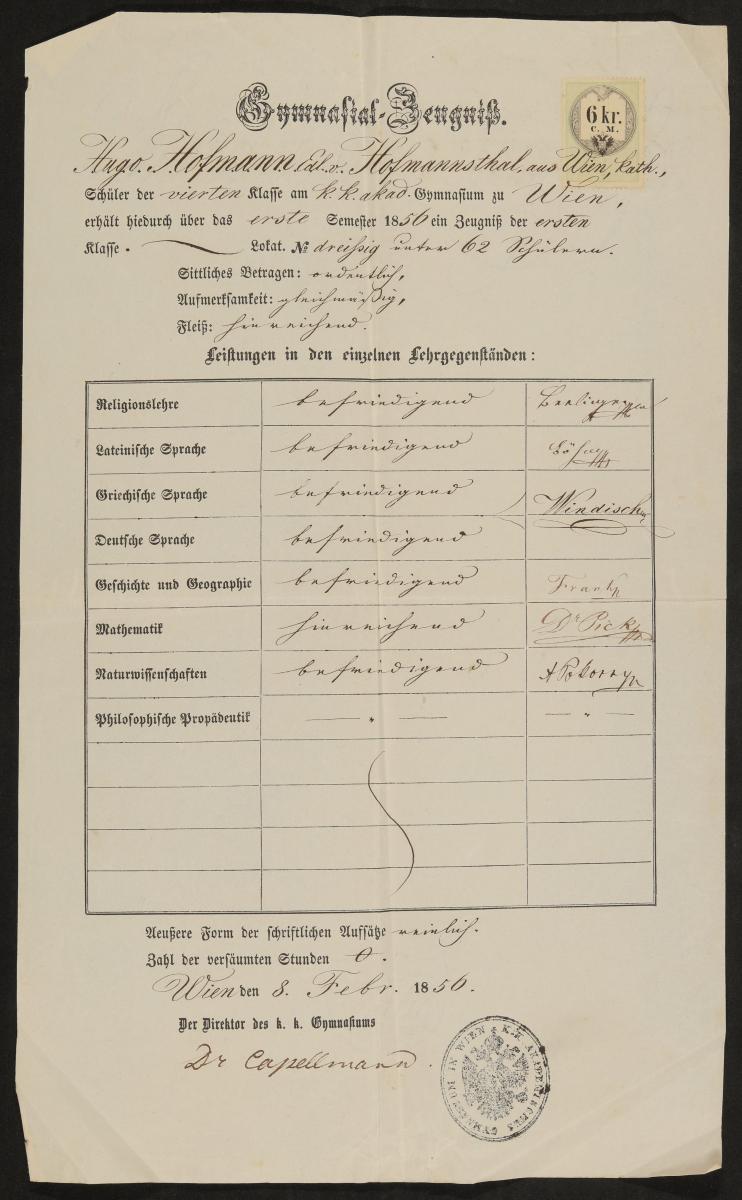 Gymnasial-Zeugniß.
6 kr.
C. M.
Hugo Hofmann Edl. v. Hofmannsthal, aus Wien, kath.,
Schüler der vierten Klasse am k. k. akad. Gymnasium zu Wien,
erhält hiedurch über das erste Semester 1856 ein Zeugniß der ersten
Klasse. Lokat. № dreissig unter 62 Schülern.
Sittliches Betragen: ordentlich,
Aufmerksamkeit: gleichmäßig,
Fleiß: hinreichend.
Leistungen in den einzelnen Lehrgegenständen:
Religionslehre befriedigend
Lateinische Sprache befriedigend
Griechische Sprache befriedigend Windisch
Deutsche Sprache befriedigend
Geschichte und Geographie befriedigend Frank
Mathematik hinreichend Dr Pick
Naturwissenschaften befriedigend A Pokorny
Philosophische Propädeutik — " — — " —
Aeußere Form der schriftlichen Aufsätze reinlich.
Zahl der versäumten Stunden 0.
Wien den 8. Febr. 1856.
Der Direktor des k. k. Gymnasiums
Dr Capellmann.
K. K. AKADEMISCHES GYMNASIUM IN WIEN